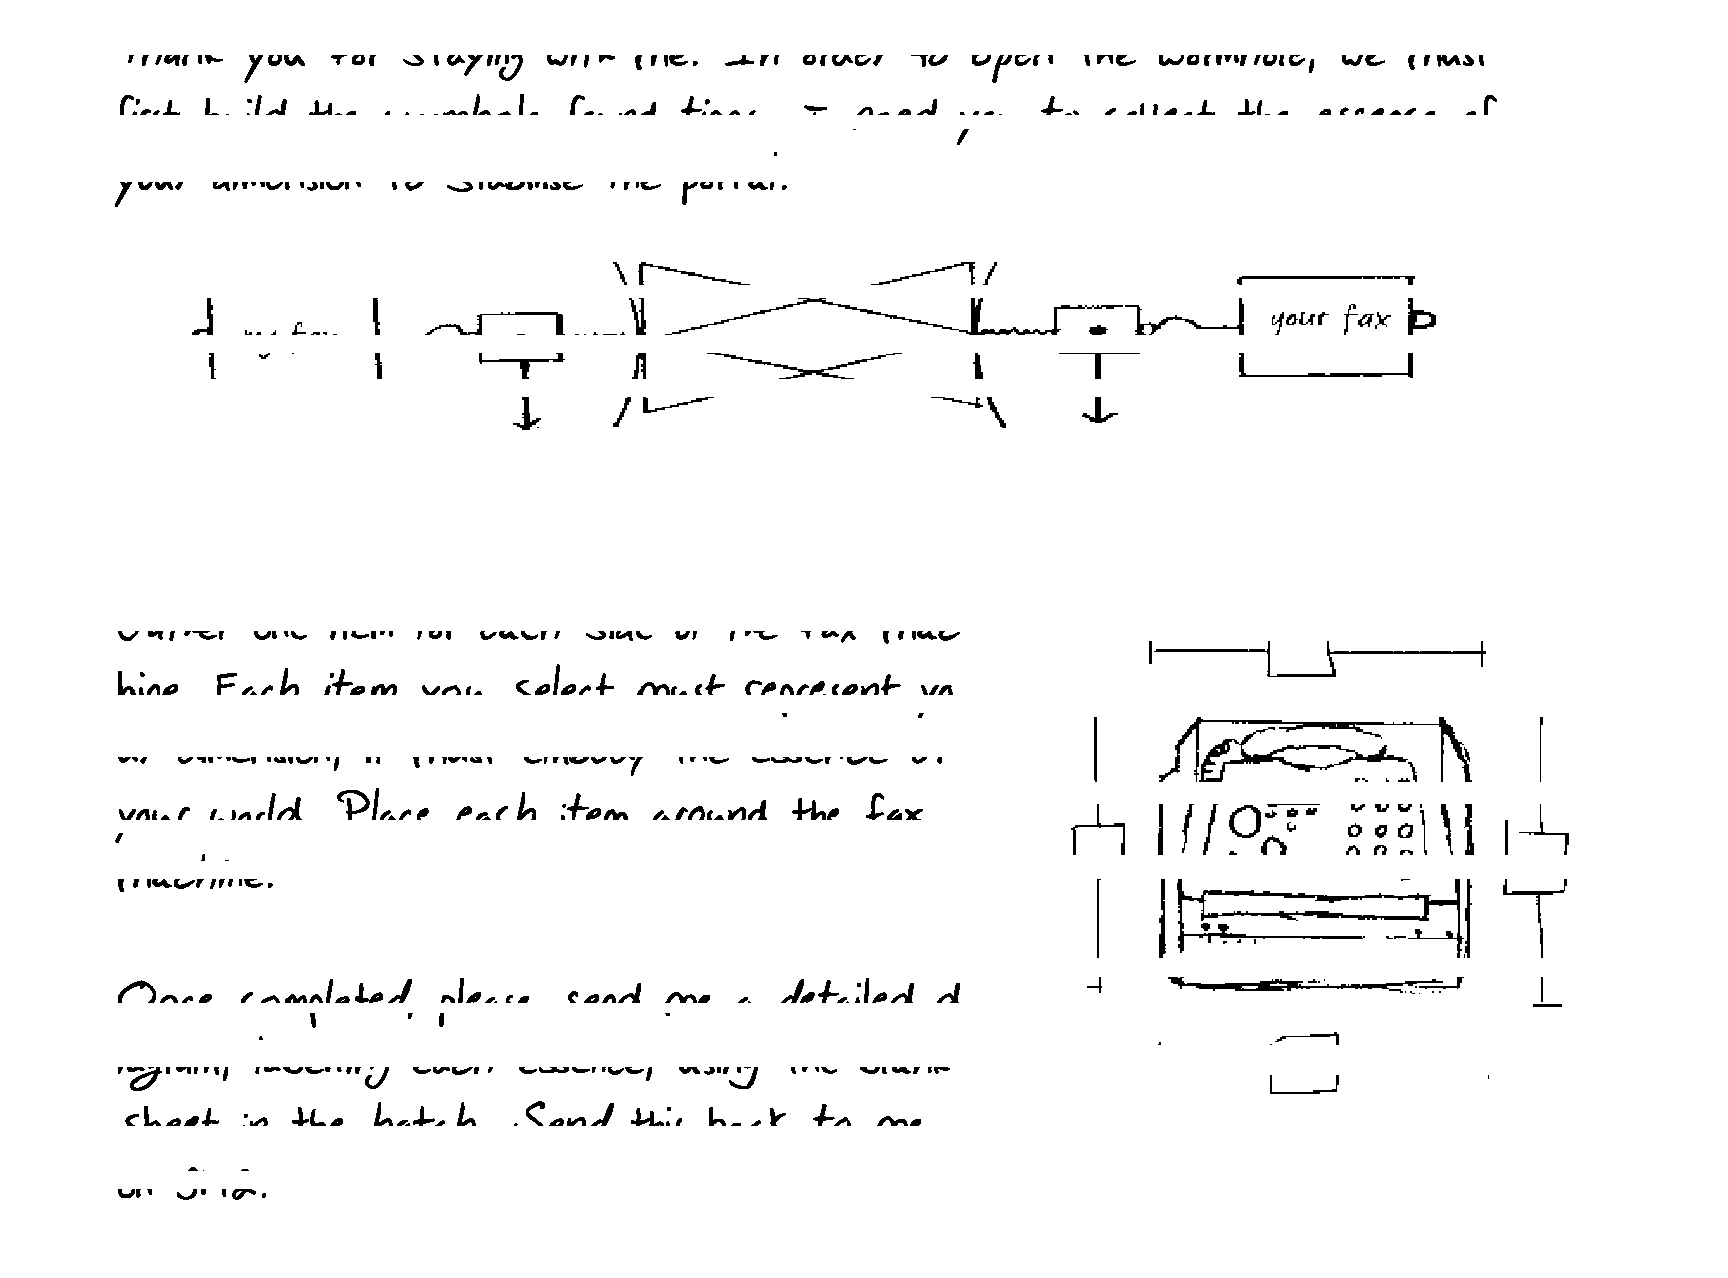 Thank you for staying with me. In order to open the wormhole, we must
first build the wormhole foundations. I need you to collect the essence of
your dimension to stabilise the portal.
my fax
your fax
Gather one item for each side of the fax mac
hine. Each item you select must represent yo
ur dimension, it must embody the essence of
your world. Place each item around the fax
machine.
Once completed, please send me a detailed d
iagram, labelling each essence, using the blank
sheet in the hatch. Send this back to me
on